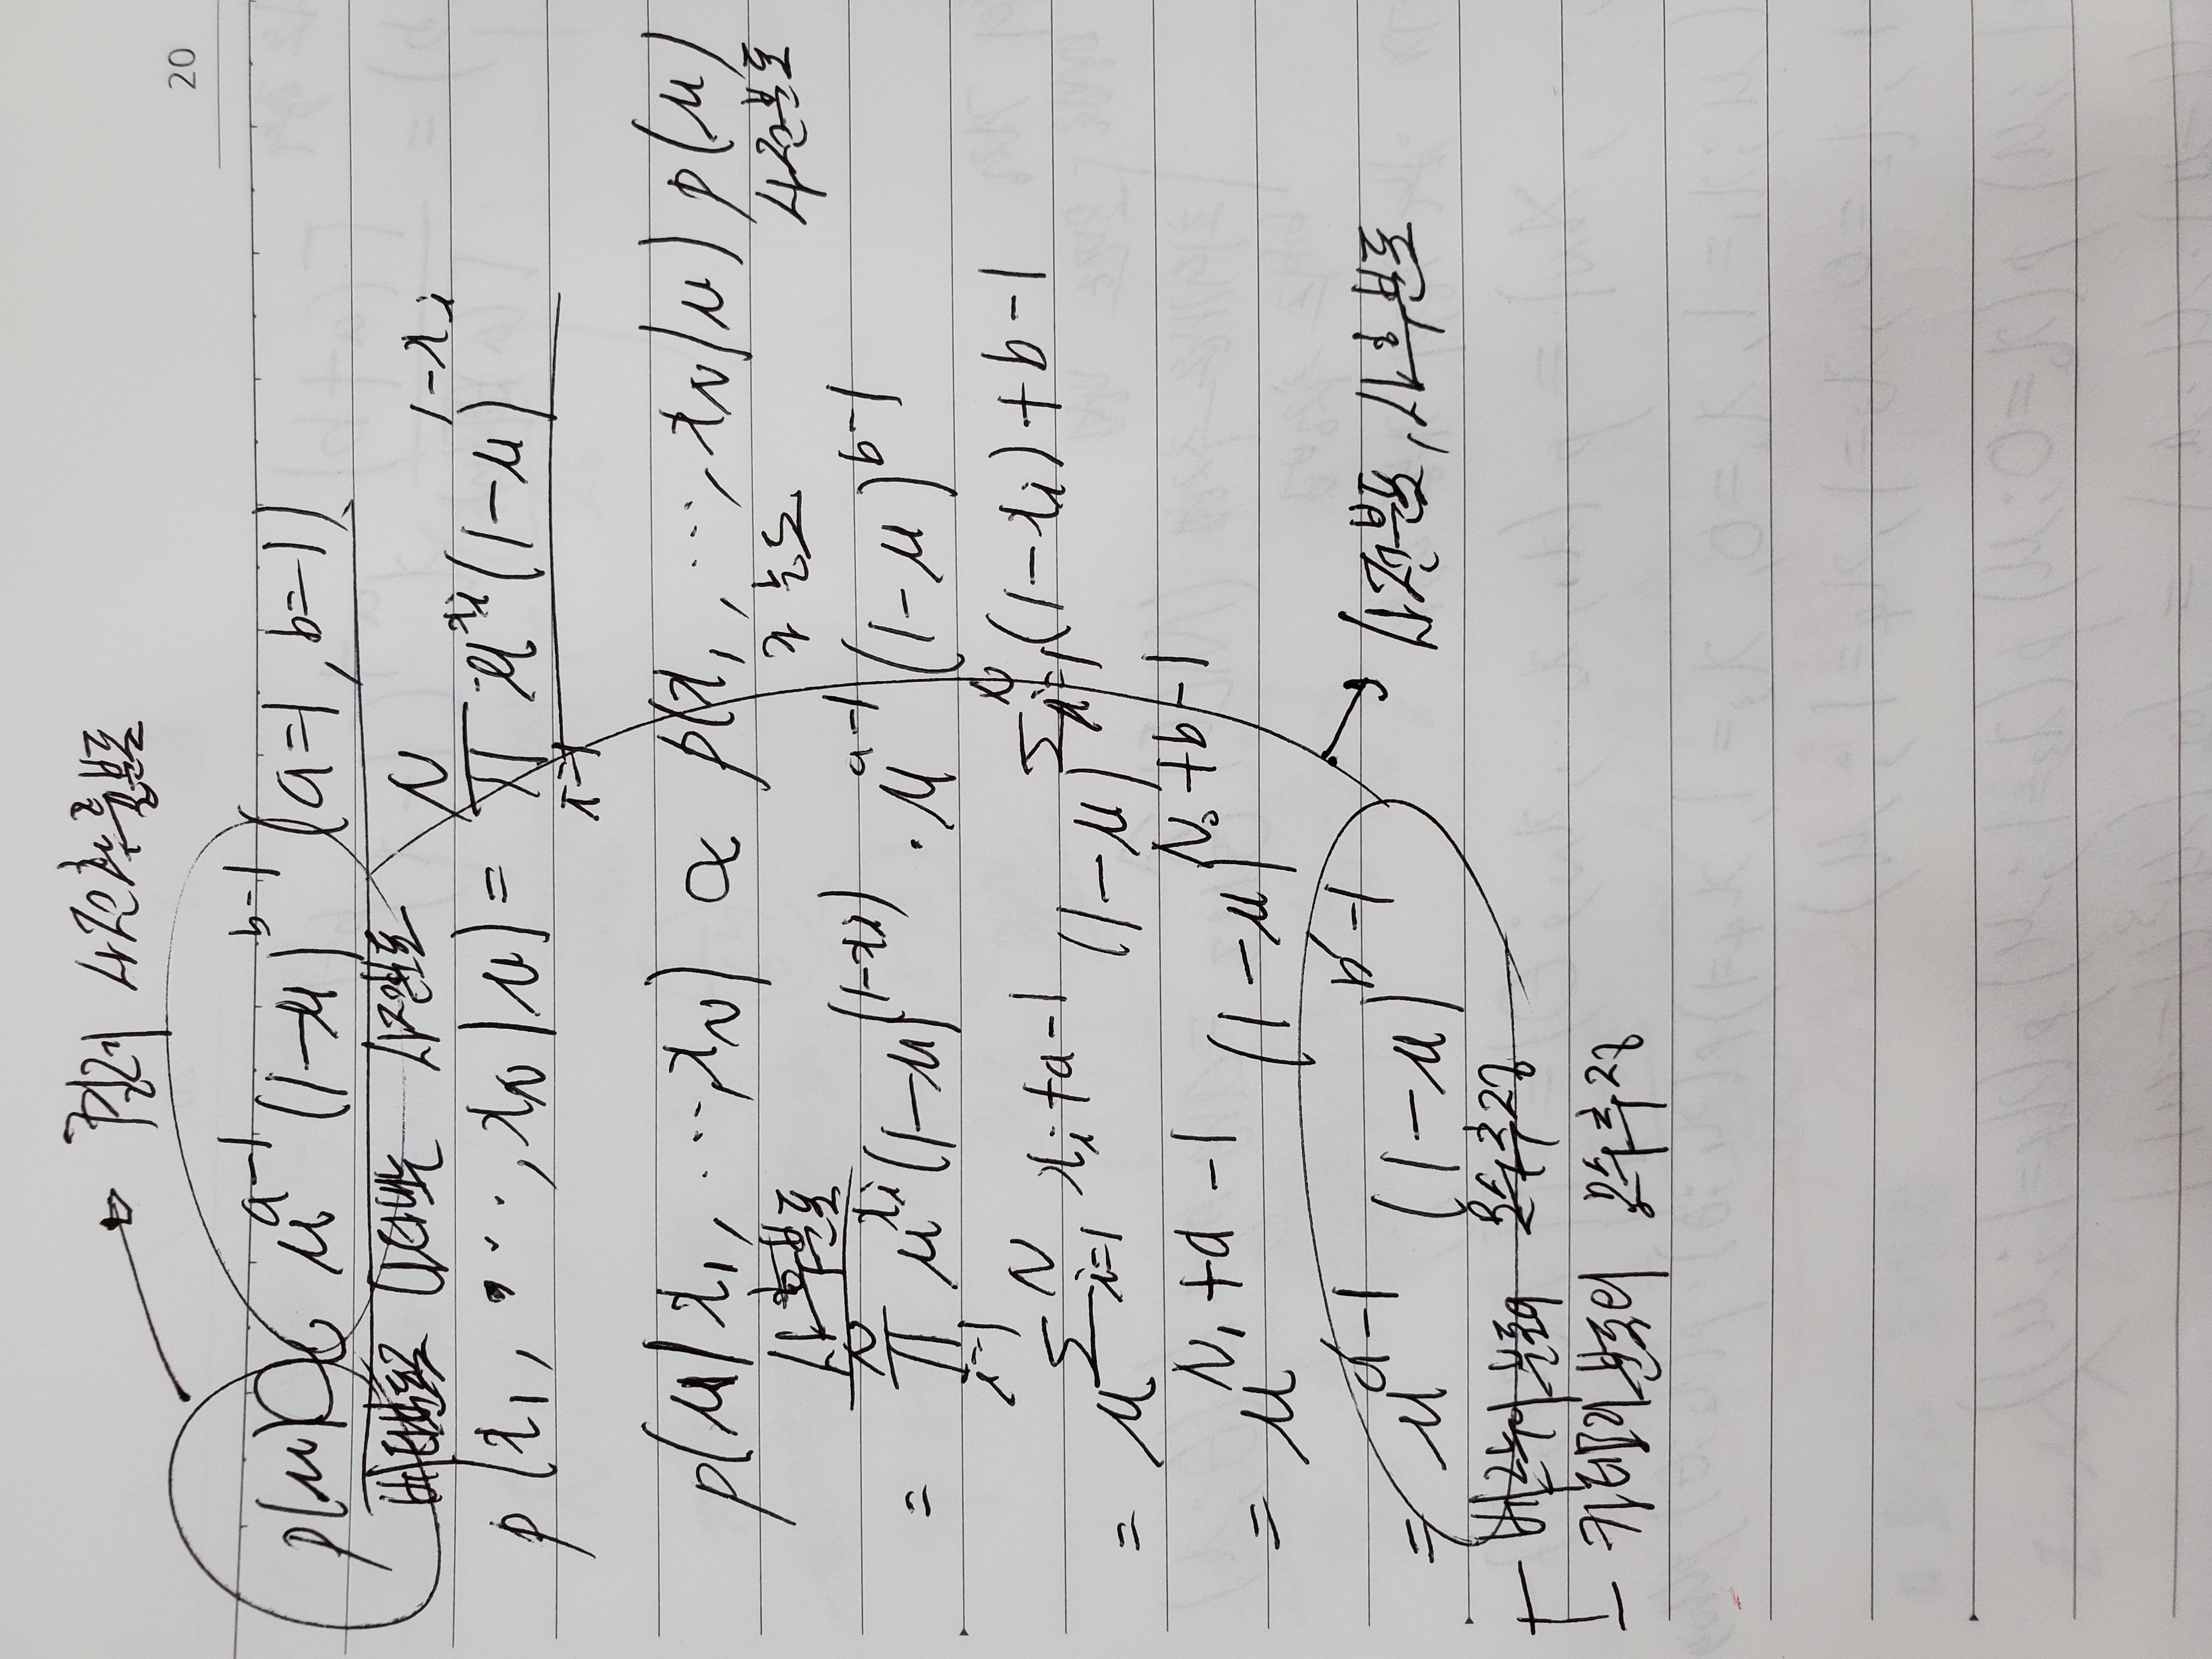 켤레 사전확률분포
20
p(μ) ∝ μ^{a-1} (1-μ)^{b-1} (a=1, b=1)
베타분포로 나타내는 사전분포
p(x₁, ⋯, x_N | μ) = ∏_{i=1}^{N} μ^{x_i} (1-μ)^{1-x_i}
p(μ | x₁, ⋯, x_N) ∝ p(x₁, ⋯, x_N | μ) p(μ)
사후분포 가능도 사전분포
= ∏_{i=1}^{N} μ^{x_i} (1-μ)^{(1-x_i)} · μ^{a-1} (1-μ)^{b-1}
= μ^{Σ_{i=1}^{N} x_i + a-1} (1-μ)^{Σ_{i=1}^{N} (1-x_i) + b-1}
= μ^{N₁+a-1} (1-μ)^{N₀+b-1}
= μ^{a'-1} (1-μ)^{b'-1} → 사전분포, 사후분포
- 베르누이 분포의 모수추정
- 카테고리 분포의 모수추정